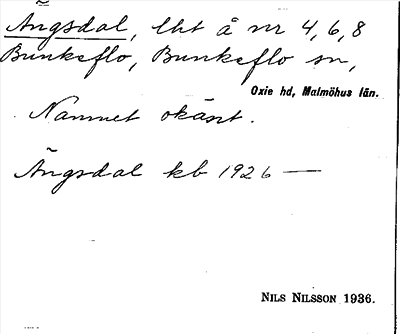 Ängsdal, lht å nr 4, 6, 8
Bunkeflo, Bunkeflo sn,
Oxie hd, Malmöhus län.
Namnet okänt.
Ängsdal kb 1926 —
NILS NILSSON 1936.